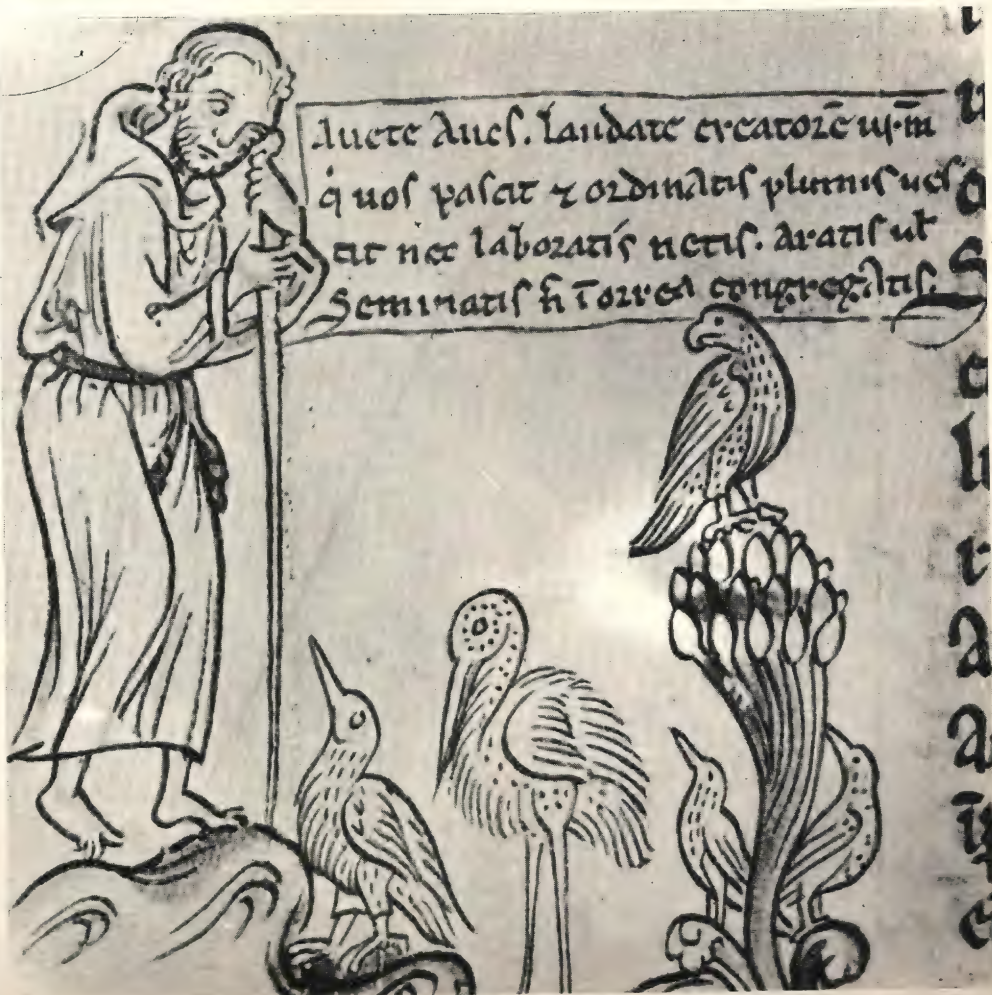 Auete Aues. laudate creatorē ur̄m
q̇ uos pascit ⁊ ordinatis plumis ues
tit nec laboratis netis. Aratis ul̄
Seminatis n̄ ī orrea congregatis.